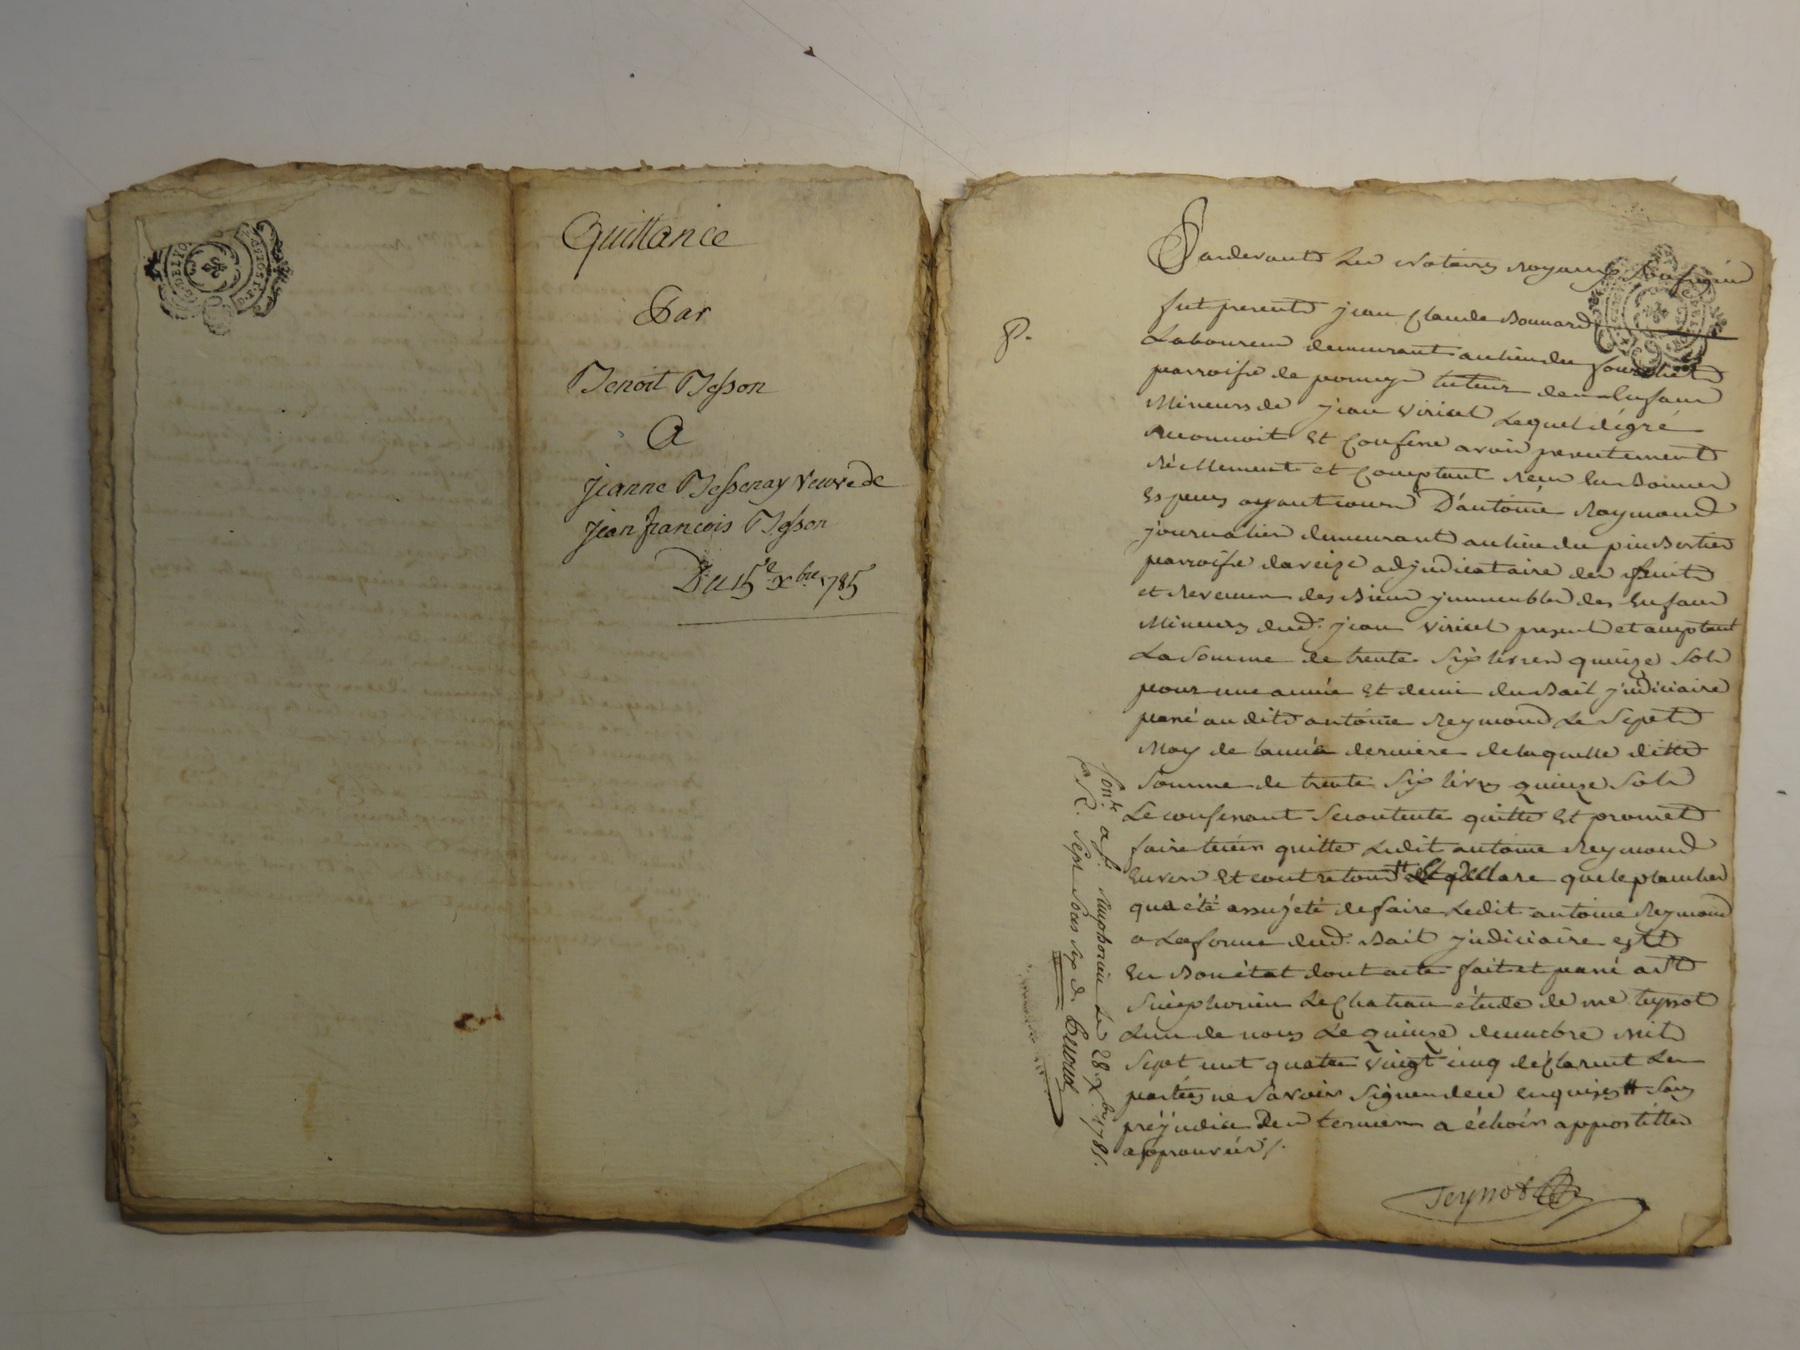 Quittance
Par
Benoit Besson
A
jeanne Bessenay veuve de
jean francois Besson
Du 15e xbre 1785
Pardevant Les Notaires Royaux soussignés
fut present jean Claude Bonnard
P.
Laboureur demeurant au lieu du
parroisse de pomeys tuteur des Enfans
Mineurs de jean viricel Lequel dégré
reconnoit Et Confesse avoir presentement
réellement et Comptant receu En Bonnes
Especes ayant cours D'antoine Raymond
journalier demeurant au lieu du pin Bertier
parroisse daveize adjudicataire des fruits
et Revenus des Biens jmmeubles des Enfans
Mineurs dud. jean viricel present et acceptant
La Somme de trente Six livres quinze Sols
pour une année Et demi du Bail judiciaire
passé audit antoine Reymond Le Sept
May de lannée derniere de laquelle ditte
Somme de trente Six livres quinze Sols
Le confessant Se contente quitte Et promet
faire tenir quitte Ledit antoine Reymond
Envers Et contre tous declare que le plancher
qua été assujeté de faire Ledit antoine Reymond
a La forme dud. Bail judiciaire est
En Bon état dont acte fait et passé a St
Simphorien Le Chateau étude de me teyssot
Lun de nous Le quinze decembre mil
Sept cent quatre vingt cinq déclarent Les
parties ne Savoir Signer de ce enquises # Sans
préjudice Des termes a échoir appostilles
approuvées /.
Teyssot
Con.le a St. Simphorien Le 28 Xbre 1785.
R. Sept Sols six d.